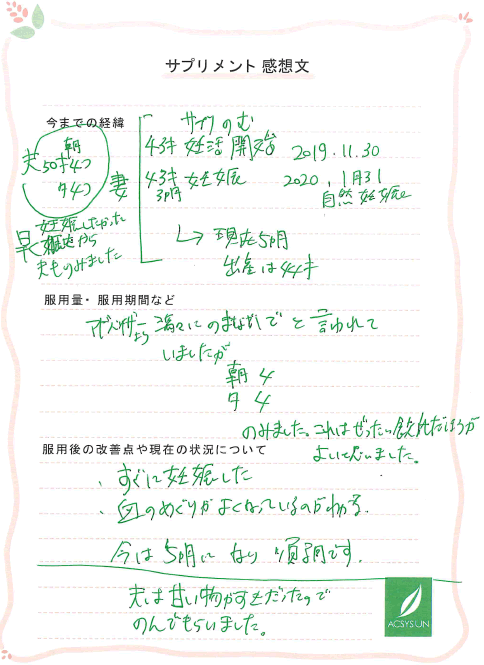 サプリメント 感想文
今までの経緯
サプリのむ
43才 妊活開始 2019.11.30
43才 妊娠 2020.1月31
3ヶ月
自然妊娠
朝
夫 50才 4つ
夕4つ
妻
妊娠したかった
から
夫ものみました
↳ 現在5ヶ月
出産は44才
服用量・服用期間など
アドバイザーから 満々にのまないでと言われて
いましたが
朝 4
夕 4
のみました。これはぜったい飲んだほうが
よいと思いました。
服用後の改善点や現在の状況について
、すぐに妊娠した
、血のめぐりがよくなっているのがわかる。
今は5ヶ月になり順調です。
夫は甘い物がすきだったので
のんでもらいました。
ACSYSUN